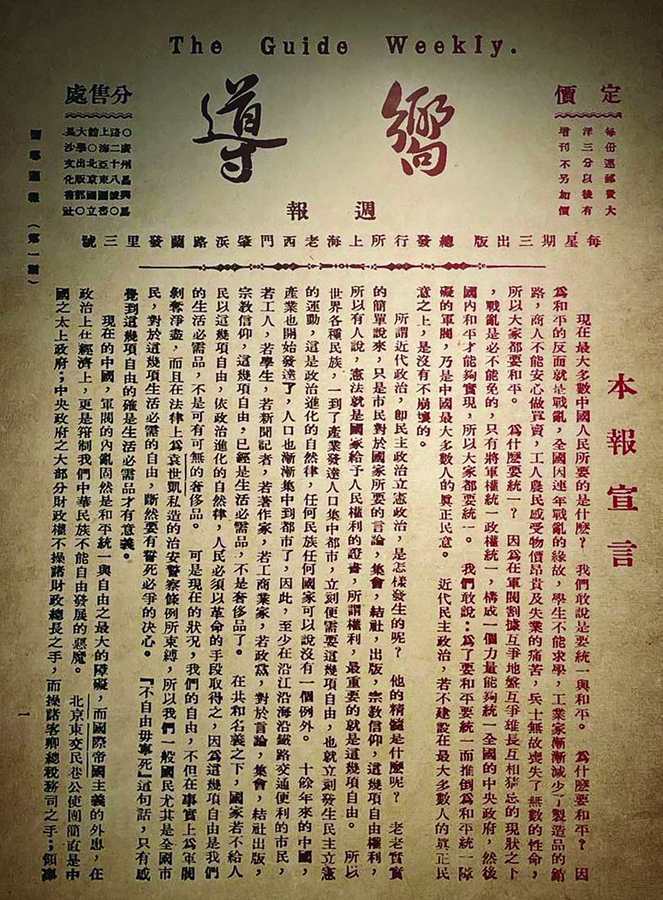 The Guide Weekly.
嚮導
週報
定價
每份連郵費大
洋三分以後有
增刊不另加價
分售處
○廣州昌興馬
路二十八號○
上海亞東圖書
館○北京國立
大學出版部○
長沙文化書社
每星期三出版 總發行所上海老西門肇浜路蘭發里三號
本報宣言
現在最大多數中國人民所要的是什麼？ 我們敢說是要統一與和平。 爲什麼要和平？ 因
爲和平的反面就是戰亂，全國因連年戰亂的緣故，學生不能求學，工業家漸漸減少了製造品的銷
路，商人不能安心做買賣，工人農民感受物價昂貴及失業的痛苦，兵士無故喪失了無數的性命，
所以大家都要和平。 爲什麼要統一？ 因爲在軍閥割據互爭地盤互爭雄長互相猜忌的現狀之下
，戰亂是必不能免的，只有將軍權統一政權統一，構成一個力量能夠統一全國的中央政府，然後
國內和平才能夠實現，所以大家都要統一。 我們敢說：爲了要和平要統一而推倒爲和平統一障
礙的軍閥，乃是中國最大多數人的眞正民意。 近代民主政治，若不建設在最大多數人的眞正民
意之上，是沒有不崩壞的。
所謂近代政治，即民主政治立憲政治，是怎樣發生的呢？ 他的精髓是什麼呢？ 老老實實
的簡單說來，只是市民對於國家所要的言論，集會，結社，出版，宗敎信仰，這幾項自由權利，
所以有人說，憲法就是國家給予人民權利的證書，所謂權利，最重要的就是這幾項自由。 所以
世界各種民族，一到了產業發達人口集中都市，立刻便需要這幾項自由，也就立刻發生民主立憲
的運動，這是政治進化的自然律，任何民族任何國家可以說沒有一個例外。 十餘年來的中國，
產業也開始發達了，人口也漸漸集中到都市了，因此，至少在沿江沿海沿鐵路交通便利的市民，
若工人，若學生，若新聞記者，若著作家，若工商業家，若政黨，對於言論，集會，結社出版，
宗敎信仰，這幾項自由，已經是生活必需品，不是奢侈品了。 在共和名義之下，國家若不給人
民以這幾項自由，依政治進化的自然律，人民必須以革命的手段取得之，因爲這幾項自由是我們
的生活必需品，不是可有可無的奢侈品。 可是現在的狀況，我們的自由，不但在事實上爲軍閥
剝奪淨盡，而且在法律上爲袁世凱私造的治安警察條例所束縛，所以我們一般國民尤其是全國市
民，對於這幾項生活必需的自由，斷然要有誓死必爭的決心。 『不自由毋寧死』這句話，只有感
覺到這幾項自由的確是生活必需品才有意義。
現在的中國，軍閥的內亂固然是和平統一與自由之最大的障礙，而國際帝國主義的外患，在
政治上在經濟上，更是箝制我們中華民族不能自由發展的惡魔。 北京東交民巷公使團簡直是中
國之太上政府；中央政府之大部分財政權不操諸財政總長之手，而操諸客卿總稅務司之手；領事
嚮導週報（第一期）
一